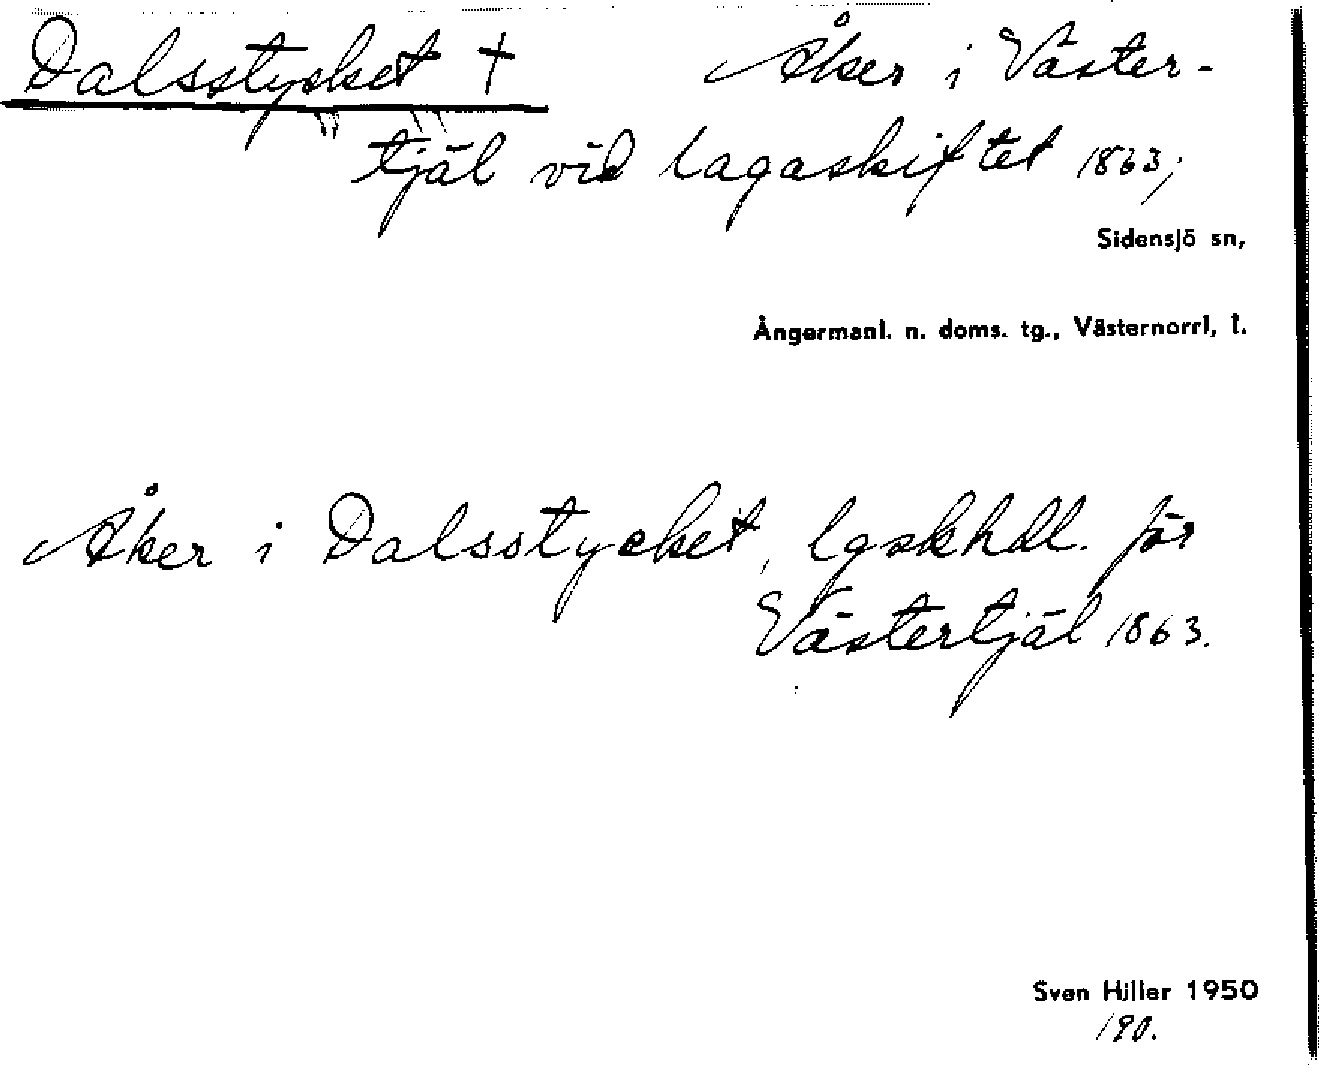 Dalsstycket † Åker i Väster-
tjäl vid lagaskiftet 1863;
Sidensjö sn,
Ångermanl. n. doms. tg., Västernorrl, l.
Åker i Dalsstycket, lgskhdl. för
Västertjäl 1863.
Sven Hiller 1950
190.